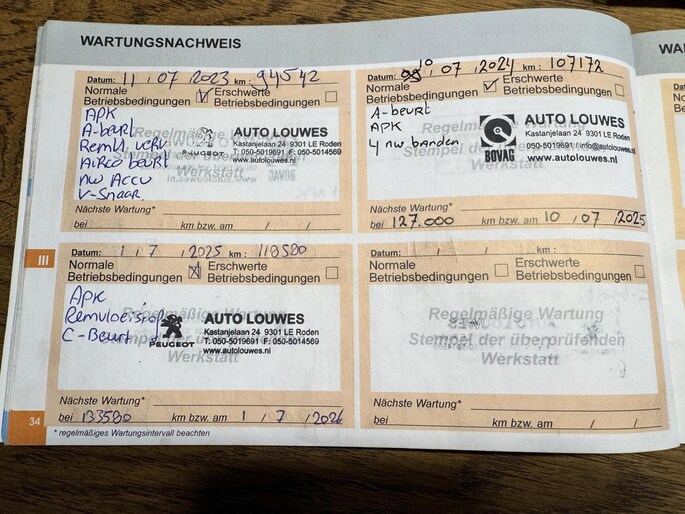 WARTUNGSNACHWEIS
WA
Datum: 11 / 07 / 2023 km: 94542
Normale Betriebsbedingungen
Erschwerte Betriebsbedingungen
APK
A-beurt
Remvl. verv
Airco beurt
nw Accu
V-snaar
Regelmäßige Wartung
Stempel der überprüfenden
AUTO LOUWES
Kastanjelaan 24 9301 LE Roden
T: 050-5019691 F: 050-5014569
www.autolouwes.nl
PEUGEOT
Nächste Wartung*
bei km bzw. am / /
Datum: 10 / 07 / 2024 km: 107172
Normale Betriebsbedingungen
Erschwerte Betriebsbedingungen
A-beurt
APK
4 nw banden
Regelmäßige Wartung
Stempel der überprüfenden
Werkstatt
BOVAG
AUTO LOUWES
Kastanjelaan 24 9301 LE Roden
050-5019691 / info@autolouwes.nl
www.autolouwes.nl
Nächste Wartung*
bei 127.000 km bzw. am 10 / 07 / 2025
III
Datum: 1 / 7 / 2025 km: 118580
Normale Betriebsbedingungen
Erschwerte Betriebsbedingungen
APK
Remvloeistof
C-Beurt
Regelmäßige Wartung
Stempel der überprüfenden
Werkstatt
PEUGEOT
AUTO LOUWES
Kastanjelaan 24 9301 LE Roden
T: 050-5019691 F: 050-5014569
www.autolouwes.nl
Nächste Wartung*
bei 133580 km bzw. am 1 / 7 / 2026
Datum: / / km:
Normale Betriebsbedingungen
Erschwerte Betriebsbedingungen
Regelmäßige Wartung
Stempel der überprüfenden
Werkstatt
Nächste Wartung*
bei km bzw. am / /
34
* regelmäßiges Wartungsintervall beachten